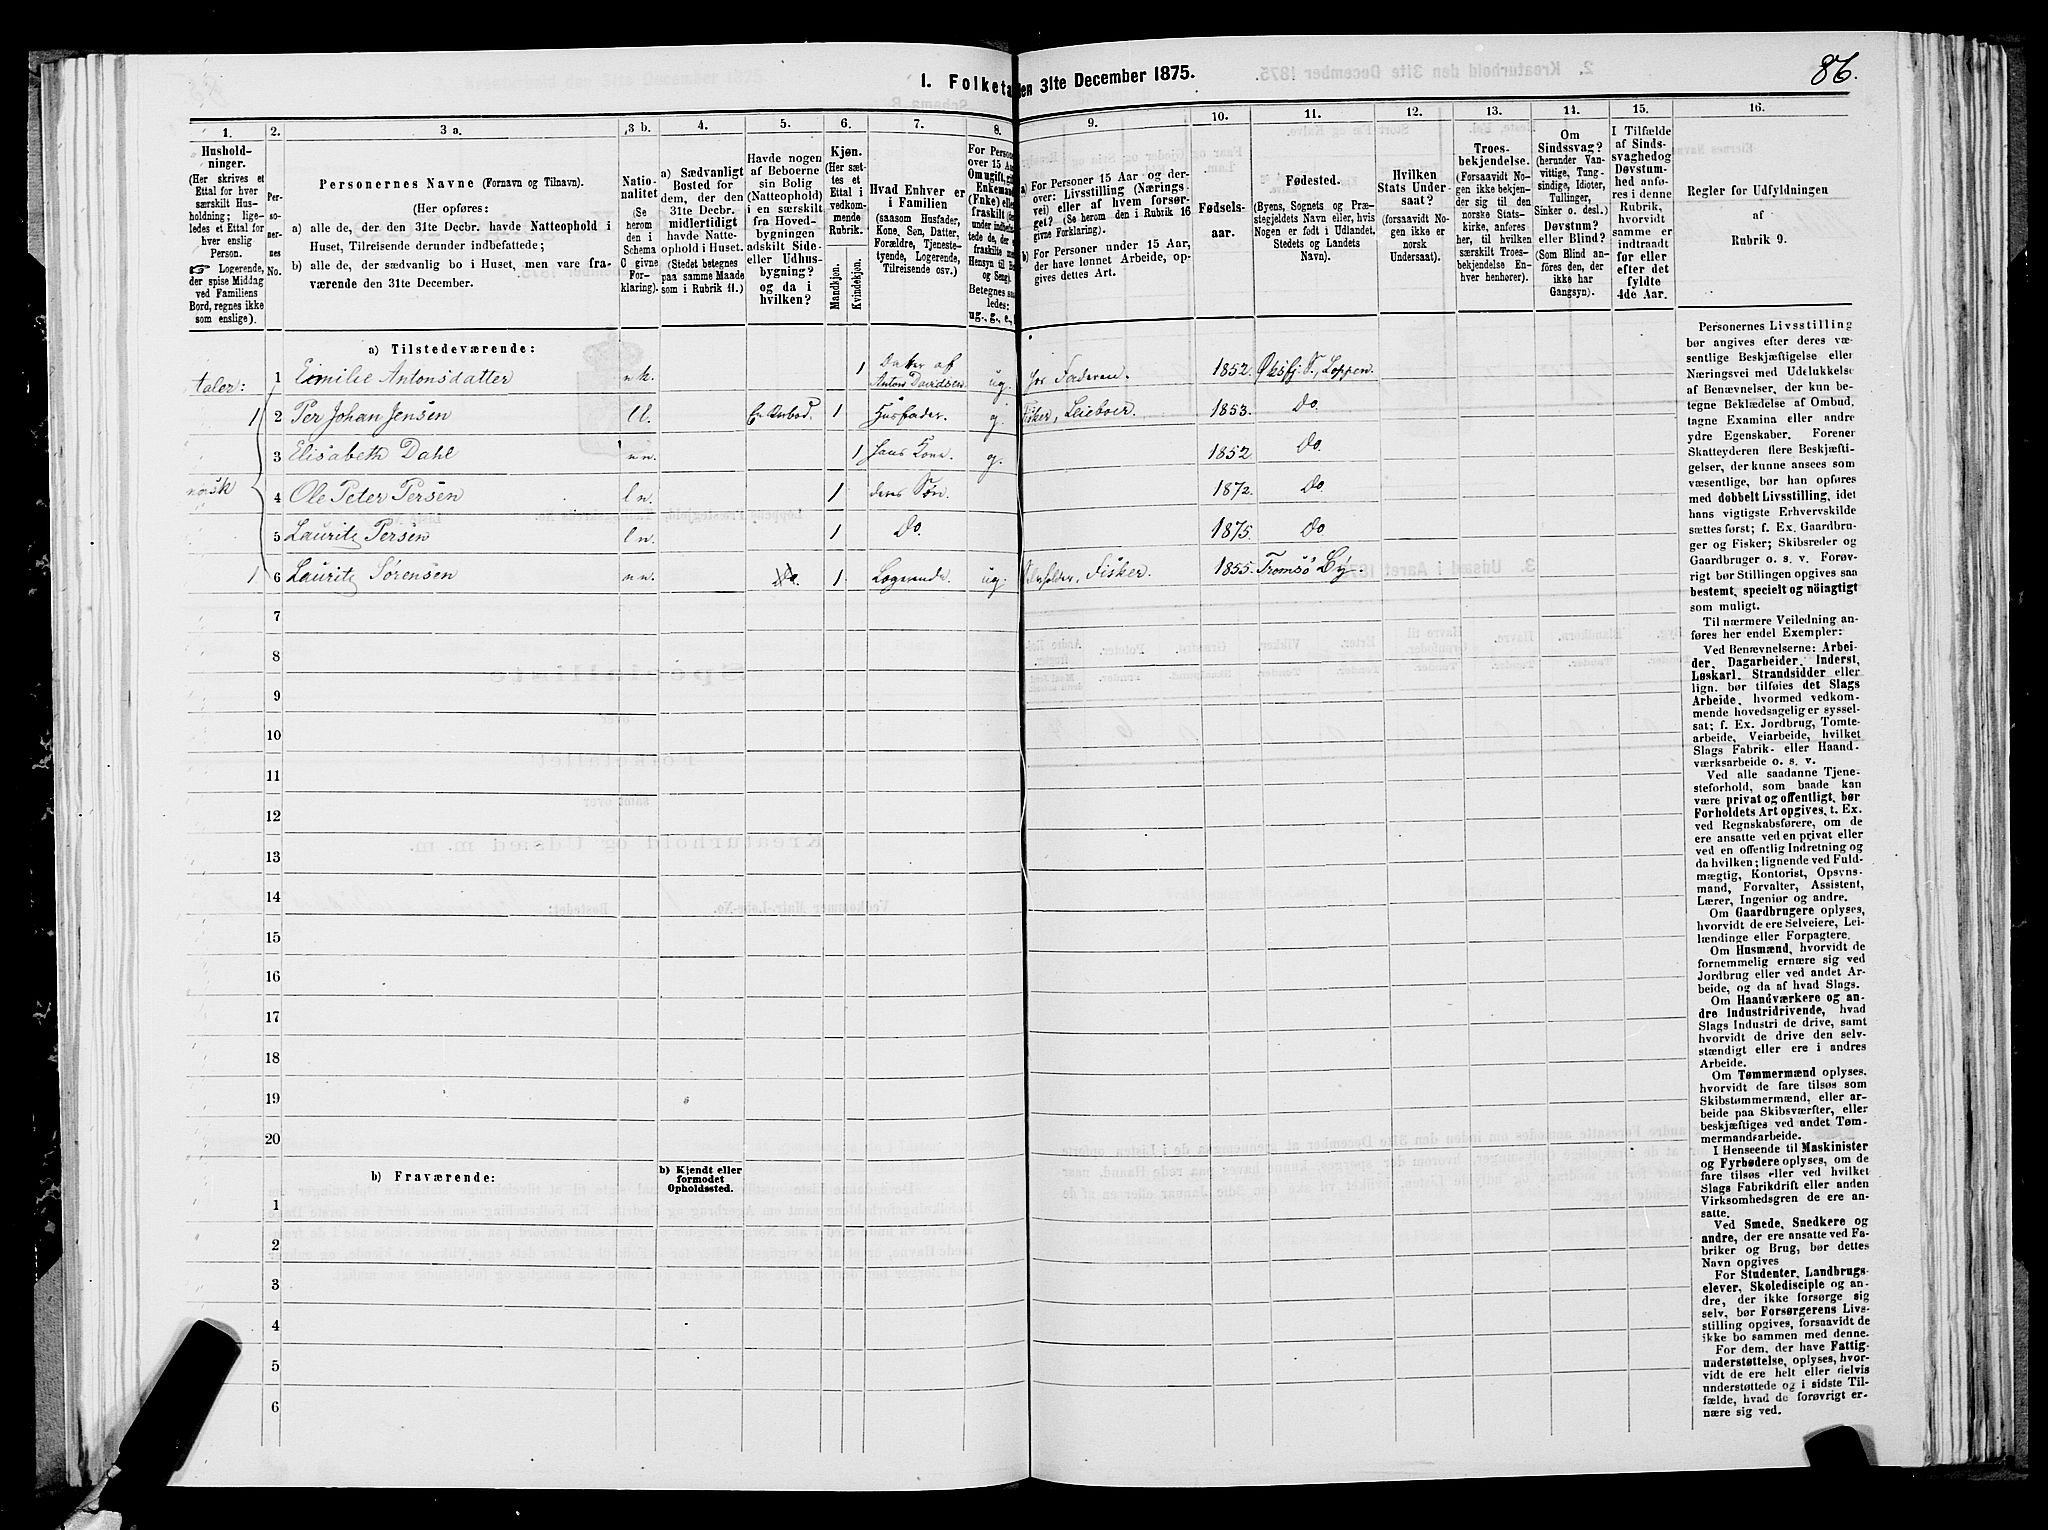 86.
1. Folketa
en 31te December 1875.
1.
2.
3 a.
3 b.
4.
5.
6.
7.
8.
9.
10.
11.
12.
13.
14.
15.
16.
Hushold-
ninger.
(Her skrives et
Ettal for hver
særskilt Hus-
holdning; lige-
ledes et Ettal for
hver enslig
Person.
☞ Logerende,
der spise Middag
ved Familiens
Bord, regnes ikke
som enslige).
Per-
so-
ner-
nes
No.
Personernes Navne (Fornavn og Tilnavn).
(Her opføres:
a) alle de, der den 31te Decbr. havde Natteophold i
Huset, Tilreisende derunder indbefattede;
b) alle de, der sædvanlig bo i Huset, men vare fra-
værende den 31te December.
Natio-
nalitet
(Se
herom
den i
Schema
C givne
For-
klaring).
a) Sædvanligt
Bosted for
dem, der den
31te Decbr.
midlertidigt
havde Natte-
ophold i Huset.
(Stedet betegnes
paa samme Maade
som i Rubrik 11.)
Havde nogen
af Beboerne
sin Bolig
(Natteophold)
i en særskilt
fra Hoved-
bygningen
adskilt Side-
eller Udhus-
bygning?
og da i
hvilken?
Kjøn.
(Her sæt-
tes et
Ettal i
vedkom-
mende
Rubrik.
Mandkjøn.
Kvindekjøn.
Hvad Enhver er
i Familien
(saasom Husfader,
Kone, Søn, Datter,
Forældre, Tjeneste-
tyende, Logerende,
Tilreisende osv.)
For Persone
over 15 Aar
Om ugift, gif
Enkemand
(Enke) eller
fraskilt
Betegnes saa
ledes:
ug., g., e.,
a)
For Personer 15 Aar og der-
over: Livsstilling (Nærings-
vei) eller af hvem forsør-
get? (Se herom den i Rubrik 16
givne Forklaring).
b)
For Personer under 15 Aar,
der have lønnet Arbeide, op-
gives dettes Art.
Fødsels-
aar.
Fødested.
(Byens, Sognets og Præ-
stegjeldets Navn eller, hvis
Nogen er født i Udlandet,
Stedets og Landets
Navn).
Hvilken
Stats Under-
saat?
(forsaavidt No-
gen ikke er
norsk
Undersaat).
Troes-
bekjendelse.
(Forsaavidt No-
gen ikke bekjen-
der sig til den
norske Stats-
kirke, anføres
her, til hvilken
særskilt Troes-
bekjendelse En-
hver henhører).
Om
Sindssvag?
(herunder Van-
vittige, Tung-
sindige, Idioter,
Tullinger,
Sinker o. desl.)
Døvstum?
eller Blind?
(Som Blind an-
føres den, der
ikke har
Gangsyn).
I Tilfælde
af Sinds-
svaghedog
Døvstum-
hed anfø-
res i denne
Rubrik,
hvorvidt
samme er
indtraadt
før eller
efter det
fyldte
4de Aar.
Regler for Udfyldningen
af
Rubrik 9.
a) Tilstedeværende:
taler:
1 Emilie Antonsdatter nk. 1 Datter af Antons Davidsen ug. hos Faderen. 1852. Øksfj. S., Loppen.
1 2 Per Johan Jensen ll. 1 Husfader. g. Fisker, Leieboer. 1853. Do.
3 Elisabeth Dahl nn. 1 hans Kone. g. 1852 Do.
norsk 4 Ole Peter Persen ln. 1 deres Søn. 1872. Do.
5 Lauritz Persen ln. 1 Do. 1875. Do
1 6 Lauritz Sørensen nn. Do. 1 Logerende ug. Fisker. 1855. Tromsø By.
7
8
9
10
11
12
13
14
15
16
17
18
19
20
b) Fraværende:
b) Kjendt eller
formodet
Opholdssted.
1
2
3
4
5
6
Personernes Livsstilling
bør angives efter deres væ-
sentlige Beskjæftigelse eller
Næringsvei med Udelukkelse
af Benævnelser, der kun be-
tegne Beklædelse af Ombud,
tagne Examina eller andre
ydre Egenskaber. Forener
Skatteyderen flere Beskjæfti-
gelser, der kunne ansees som
væsentlige, bør han opføres
med dobbelt Livsstilling, idet
hans vigtigste Erhvervskilde
sættes først; f. Ex. Gaardbru-
ger og Fisker; Skibsreder og
Gaardbruger o. s. v. Forøv-
rigt bør Stillingen opgives saa
bestemt, specielt og nöiagtigt
som muligt.
Til nærmere Veiledning an-
føres her endel Exempler:
Ved Benævnelserne: Arbei-
der, Dagarbeider, Inderst,
Løskarl, Strandsidder eller
lign. bør tilføies det Slags
Arbeide, hvormed vedkom-
mende hovedsagelig er syssel-
sat; f. Ex. Jordbrug, Tomte-
arbeide, Veiarbeide, hvilket
Slags Fabrik- eller Haand-
værksarbeide o. s. v.
Ved alle saadanne Tjene-
steforhold, som baade kan
være privat og offentligt, bør
Forholdets Art opgives, t. Ex.
ved Regnskabsførere, om de
ere ansatte ved en privat eller
ved en offentlig Indretning og
da hvilken; lignende ved Fuld-
mægtig, Kontorist, Opsyns-
mand, Forvalter, Assistent,
Lærer, Ingeniør og andre.
Om Gaardbrugere oplyses,
hvorvidt de ere Selveiere, Lei-
lændinge eller Forpagtere.
Om Husmænd, hvorvidt de
fornemmelig ernære sig ved
Jordbrug eller ved andet Ar-
beide, og da af hvad Slags.
Om Haandværkere og an-
dre Industridrivende, hvad
Slags Industri de drive, samt
hvorvidt de drive den selv-
stændigt eller ere i andres
Arbeide.
Om Tømmermænd oplyses,
hvorvidt de fare tilsøs som
Skibstømmermænd, eller ar-
beide paa Skibsværfter, eller
beskjæftiges ved andet Tøm-
mermandsarbeide.
I Henseende til Maskinister
og Fyrbødere oplyses, om de
fare tilsøs eller ved hvilket
Slags Fabrikdrift eller anden
Virksomhedsgren de ere an-
satte.
Ved Smede, Snedkere og
andre, der ere ansatte ved Fa-
briker og Brug, bør dettes
Navn opgives
For Studenter, Landbrugs-
elever, Skoledisciple og an-
dre, der ikke forsørge sig
selv, bør Forsørgerens Livs-
stilling opgives, forsaavidt de
ikke bo sammen med denne.
For dem, der have Fattig-
understøttelse, oplyses, hvor-
vidt de ere helt eller delvis
understøttede og i sidste Til-
fælde, hvad de forøvrigt er-
nære sig ved.